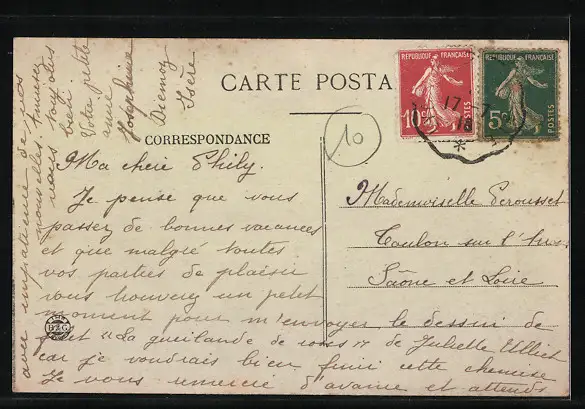 CARTE POSTA
CORRESPONDANCE
10
REPUBLIQUE FRANÇAISE
10c
POSTES
REPUBLIQUE FRANÇAISE
5c
POSTES
17 - 7
18
*
Mademoiselle Perousset
Toulon sur l'
Saône et Loire
Ma chère Phily.
Je pense que vous
passez de bonnes vacances
et que malgré toutes
vos parties de plaisir
vous trouverez un petit
moment pour m'envoyer le dessin de
"La guirlande de roses" de Juliette
car je voudrais bien finir cette chemise
Je vous remercie d'avance et attends
avec impatience de vos
nouvelles. Amusez
vous tous plus
bien
Votre petite
amie
Josephine
Diemoz
Isère
B&G